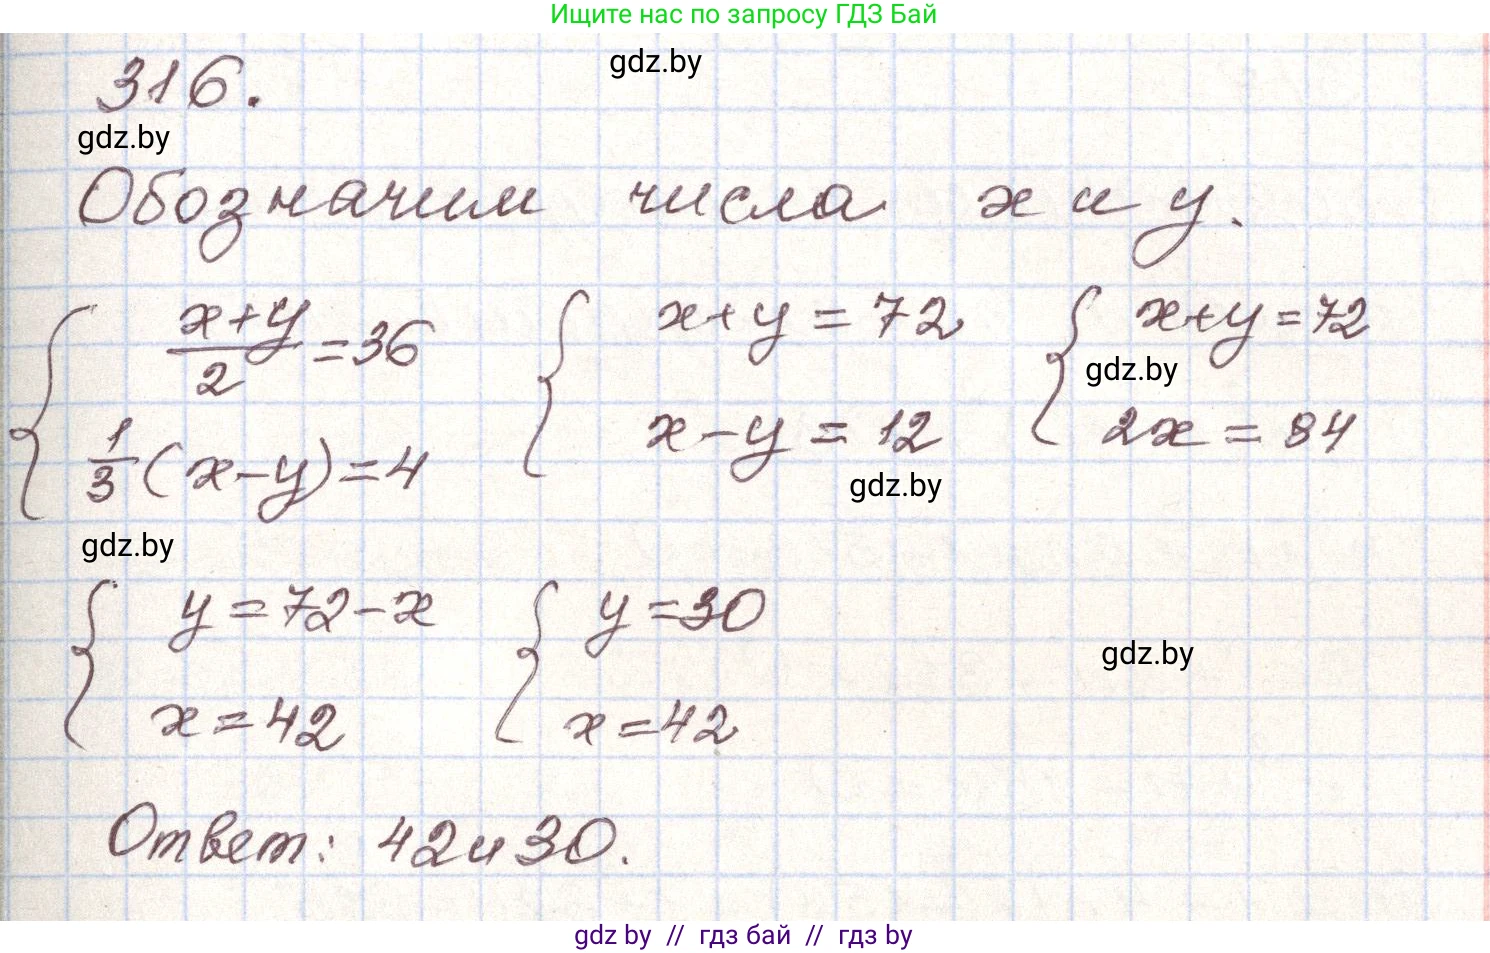 Ищите нас по запросу ГДЗ Бай
316.
gdz.by
gdz.by
Обозначим числа x и y.
{ (x+y)/2 = 36 { x+y = 72 { x+y = 72
1/3 (x-y) = 4 x-y = 12 2x = 84
gdz.by
gdz.by
gdz.by
{ y = 72-x { y = 30
x = 42 x = 42
gdz.by
Ответ: 42 и 30.
gdz by // гдз бай // гдз by